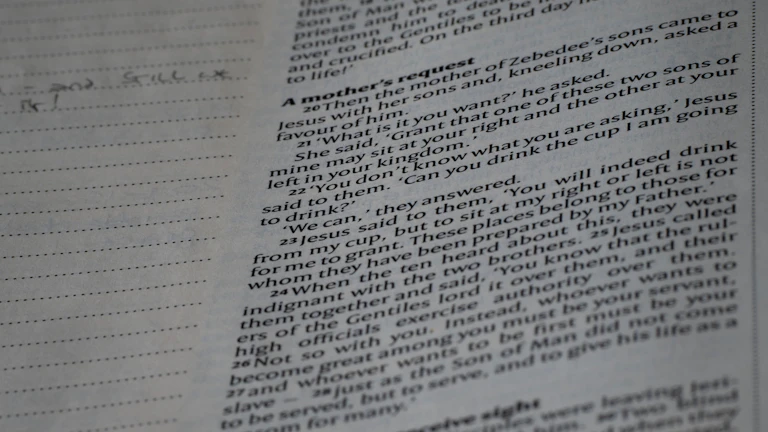 them, 
Son of Man
priests and the
condemn him to death
over to the Gentiles to be
and crucified. On the third day
to life!'
A mother's request
20 Then the mother of Zebedee's sons came to
Jesus with her sons and, kneeling down, asked a
favour of him.
21 'What is it you want?' he asked.
She said, 'Grant that one of these two sons of
mine may sit at your right and the other at your
left in your kingdom.'
22 'You don't know what you are asking,' Jesus
said to them. 'Can you drink the cup I am going
to drink?'
'We can,' they answered.
23 Jesus said to them, 'You will indeed drink
from my cup, but to sit at my right or left is not
for me to grant. These places belong to those for
whom they have been prepared by my Father.'
24 When the ten heard about this, they were
indignant with the two brothers. 25 Jesus called
them together and said, 'You know that the rul-
ers of the Gentiles lord it over them, and their
high officials exercise authority over them.
26 Not so with you. Instead, whoever wants to
become great among you must be your servant,
27 and whoever wants to be first must be your
slave – 28 just as the Son of Man did not come
to be served, but to serve, and to give his life as a
ransom for many.'
receive sight
were leaving
Two blind
when they
- and still